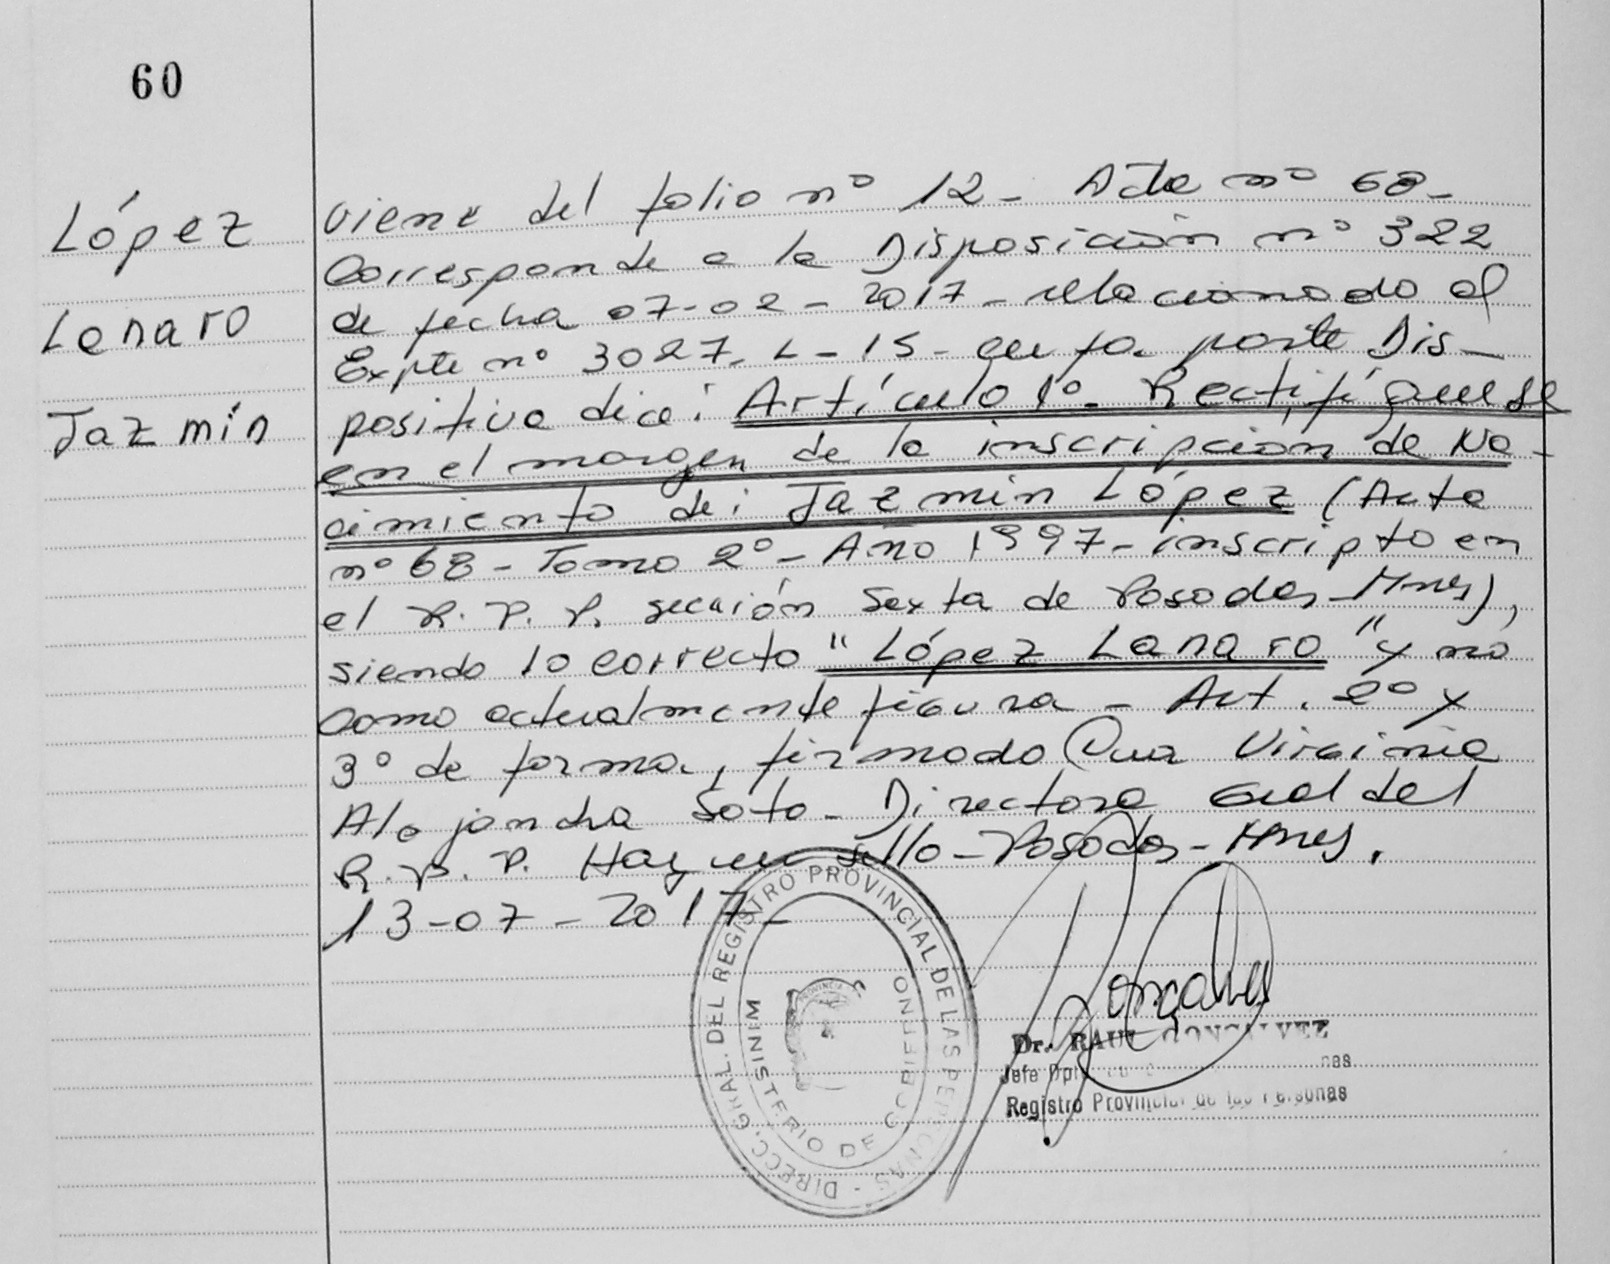 60
López
Lenaro
Jazmín
viene del folio nº 12 - Acta nº 68 -
Corresponde a la Disposición nº 322
de fecha 07-02-2017 - relacionado al
Expte nº 3027 - L - 15 - cuya parte Dis-
positiva dice: Artículo 1º - Rectifíquese
en el margen de la inscripción de Na-
cimiento de: Jazmín López (Acta
nº 68 - Tomo 2º - Año 1997 - inscripto en
el R. P. P. sección Sexta de Posadas - Mnes),
siendo lo correcto "López Lenaro" y no
como actualmente figura - Art. 2º y
3º de forma, firmado Virginia
Alejandra Soto - Directora Gral del
R. P. P. Hay un sello - Posadas - Mnes.
13-07-2017 -
DIRECC. GRAL. DEL REGISTRO PROVINCIAL DE LAS PERSONAS -
MINISTERIO DE GOBIERNO
PROVINCIA
Dr. RAUL GONCALVEZ
Jefe Dpt
Registro Provincial de las Personas